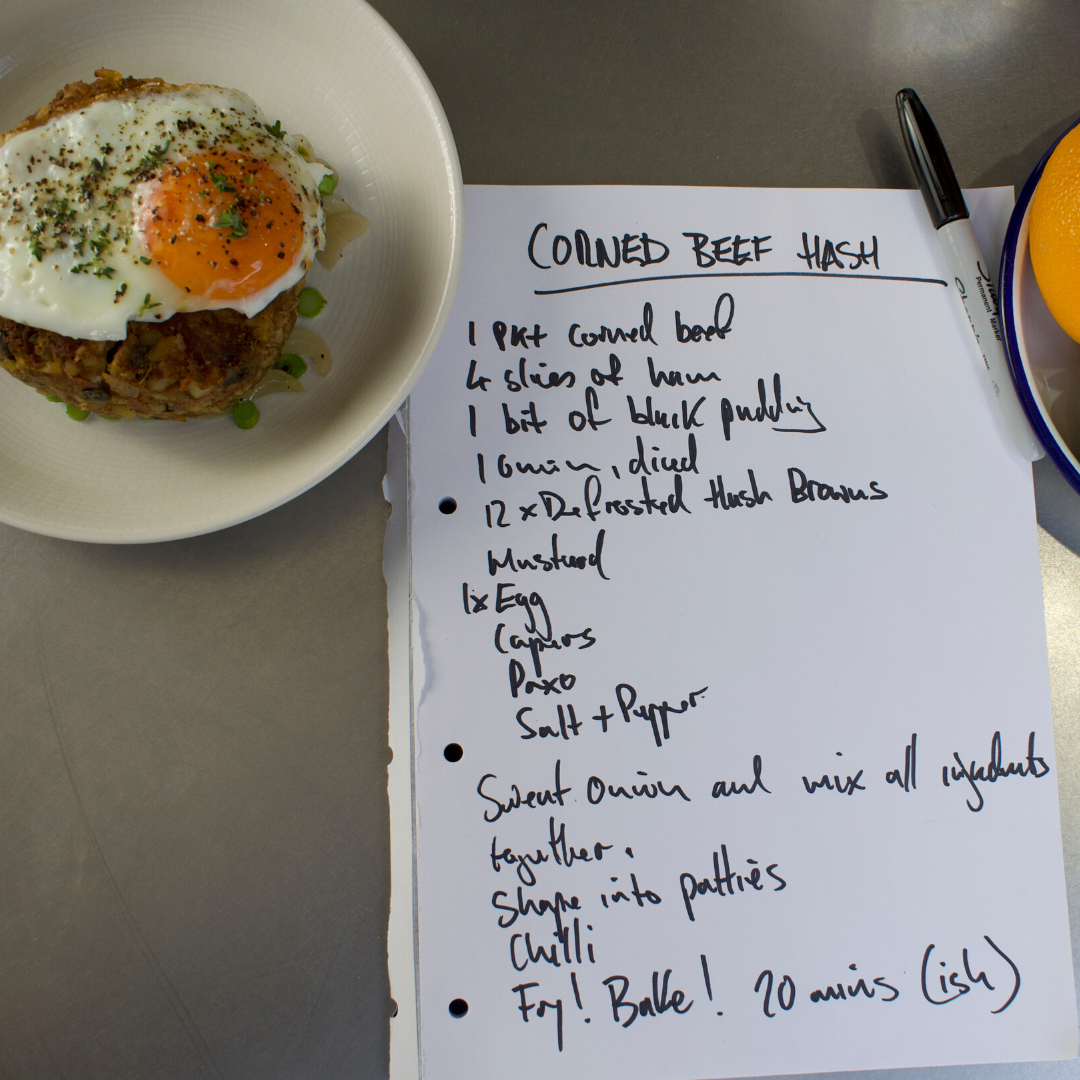 CORNED BEEF HASH
1 Pkt corned beef
4 slices of ham
1 bit of black pudding
1 onion, diced
12 x Defrosted Hash Browns
Mustard
1x Egg
Capers
Paxo
Salt + Pepper
Sweat onion and mix all ingredients
together.
Shape into patties
Chilli
Fry! Bake! 20 mins (ish)
Permanent Marker